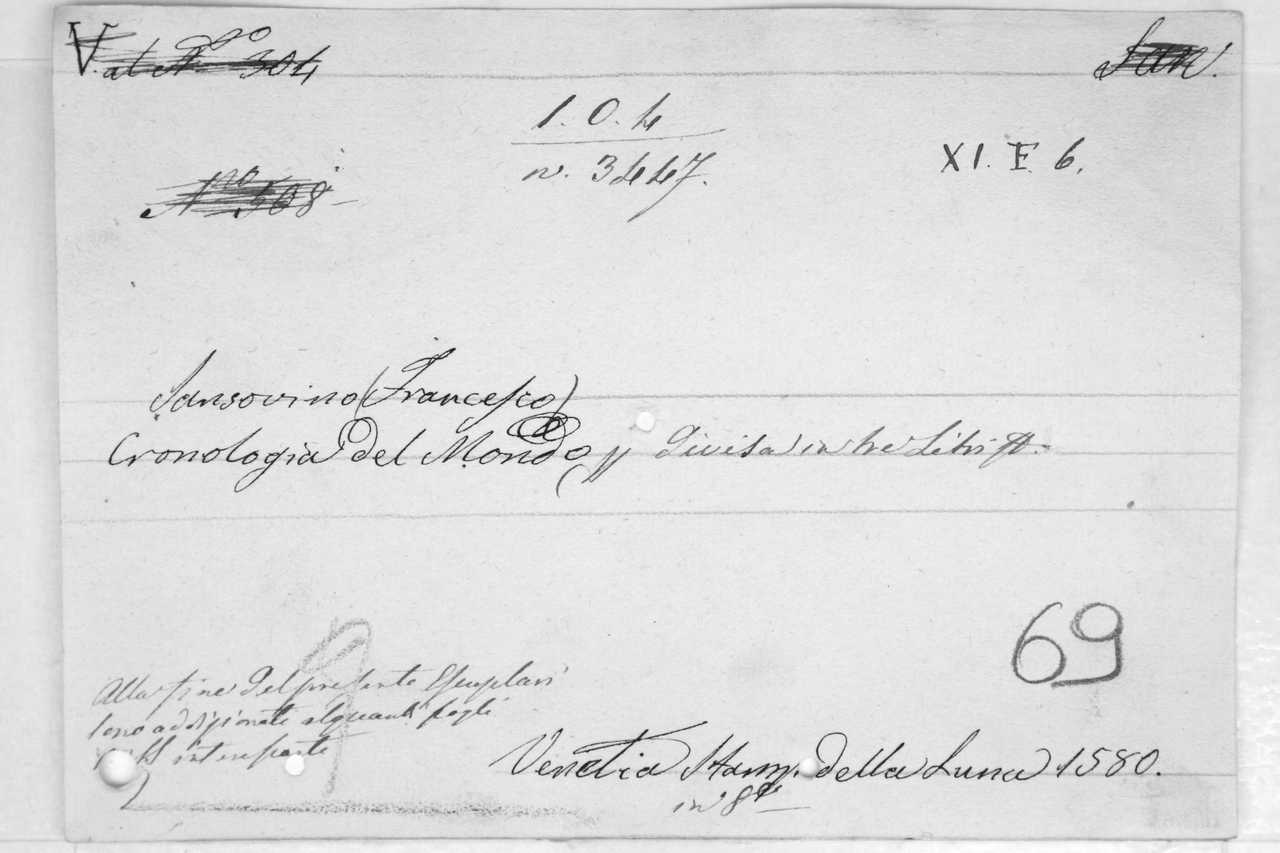 V. al N.ro 304
San.
1. 0. 4
n. 3447.
XI. F. 6.
N.ro 308
Sansovino (Francesco)
Cronologia del Mondo // divisa in tre Libri &.
69
Alla fine del presente Esemplari
sono addizionati alquanti fogli
Venetia Stamp. della Luna 1580.
in 8º